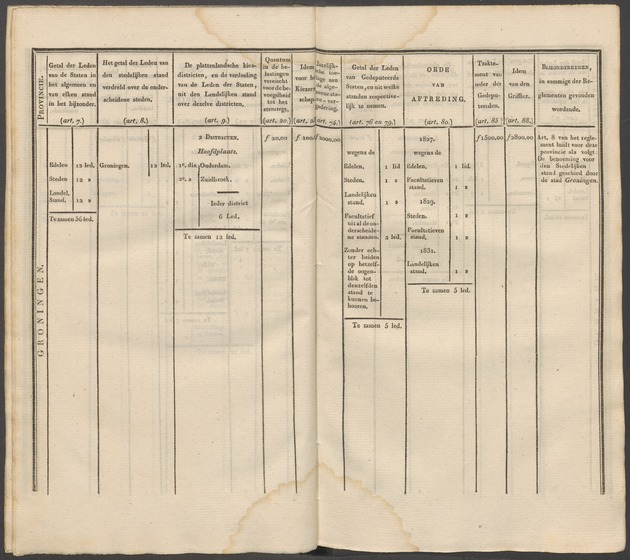 PROVINCIE.
Getal der Leden
van de Staten in
het algemeen en
van elken stand
in het bijzonder.
(art. 7.)
Het getal der Leden van
den stedelijken stand
verdeeld over de onder-
scheidene steden,
(art. 8.)
De plattenlandsche kies-
districten, en de verdeeling
van de Leden der Staten,
uit den Landelijken stand
over dezelve districten,
(art. 9.)
Quantum
in de be-
lastingen
vereischt
voor de be-
voegdheid
tot het
stemregt,
Idem
voor
Kiezer
schap
Getal der Leden
van Gedeputeerde
Staten, en uit welke
standen respective-
lijk te nemen.
(art. 76 en 79.)
ORDE
VAN
AFTREDING.
(art. 80.)
Trakte-
ment van
ieder der
Gedepu-
teerden.
(art. 85
Idem
van den
Griffier.
(art. 88.)
BIJZONDERHEDEN,
in sommige der Re-
glementen gevonden
wordende.
GRONINGEN.
Edelen 12 led.
Steden 12 »
Landel.
Stand. 12 »
Te zamen 36 led.
Groningen. 12 led.
2 DISTRICTEN.
Hoofdplaats.
1e. dis. Ouderdom.
2e. » Zuidbroek.
Ieder district
6 Led,
Te zamen 12 led.
f 20,00
wegens de
Edelen, 1 lid
Steden 1 »
Landelijken
stand. 1 »
Facultatief
uit al de on-
derscheide-
ne standen. 2 led.
Zonder ech-
ter beiden
op hetzelf-
de oogen-
blik tot
denzelfden
stand te
kunnen be-
hooren.
Te zamen 5 led.
1827.
wegens de
Edelen. 1 lid.
Facultatieven
stand. 1 »
1829.
Steden. 1 »
Facultatieven
stand. 1 »
1831.
Landelijken
stand. 1 »
Te zamen 5 led.
f 1500,00
f 2800,00
Art. 8 van het regle-
ment luidt voor deze
provincie als volgt:
De benoeming voor
den Stedelijken
stand geschied door
de stad Groningen.